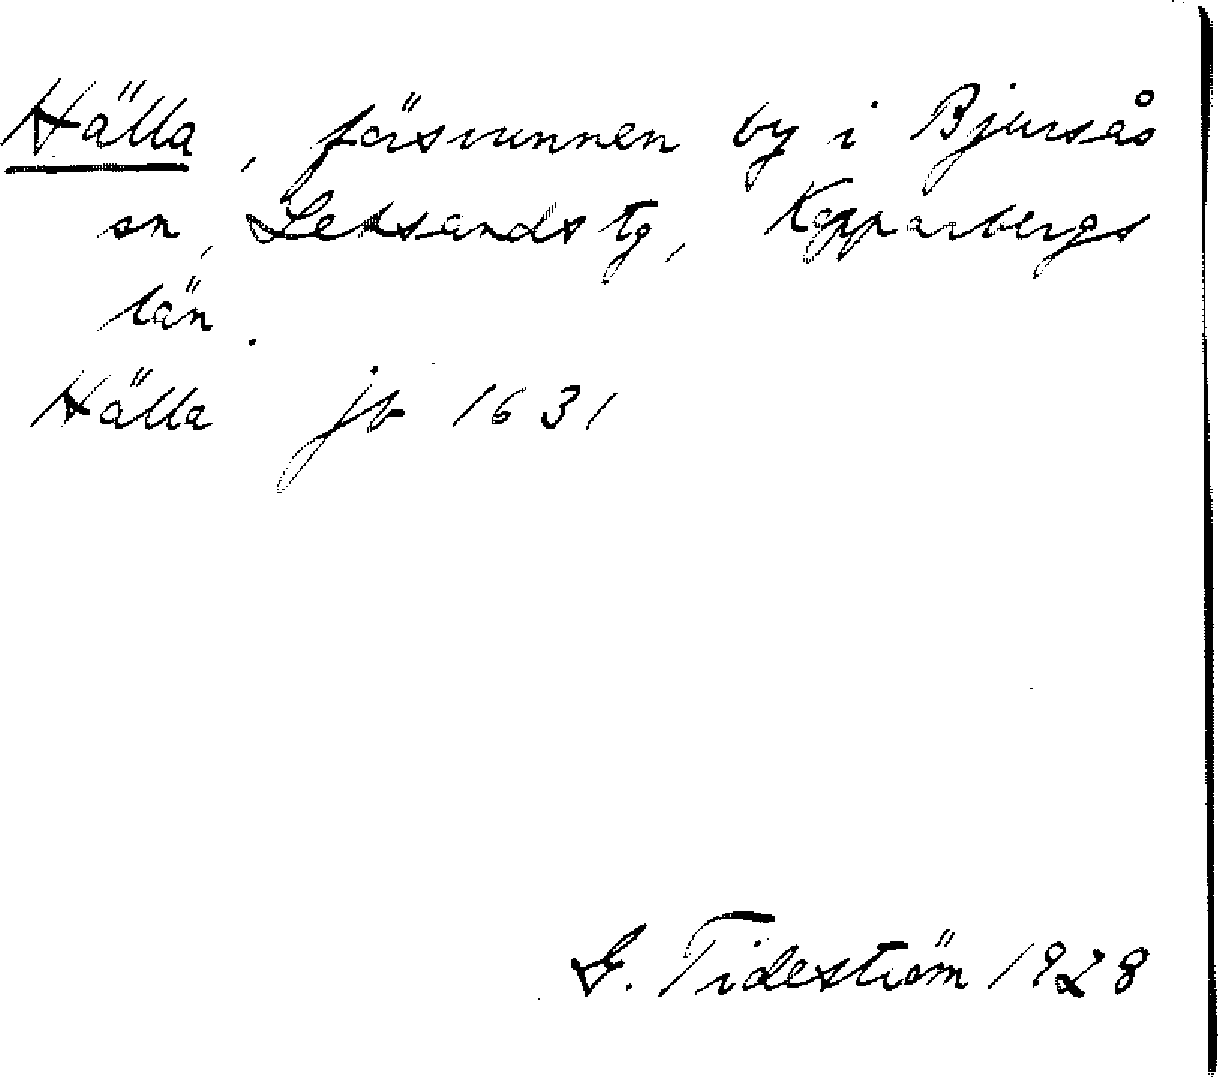 Hälla, försvunnen by i Bjursås
sn, Leksands tg, Kopparbergs
län.
Hälla jb 1631
G. Tideström 1928